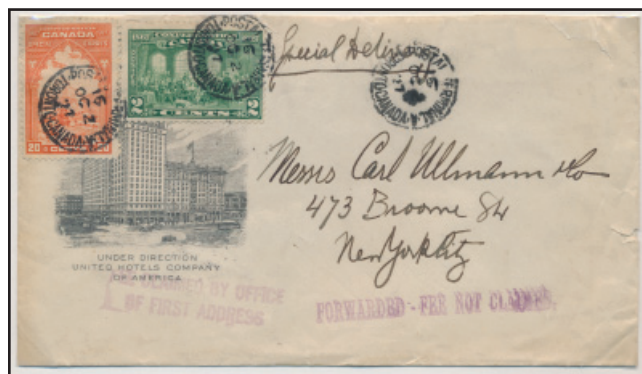 CANADA
20
1867
2 CENTS 2
Special Delivery
Messrs Carl Ullmann & Co
473 Broome St
New York City
UNDER DIRECTION
UNITED HOTELS COMPANY
OF AMERICA
BY OFFICE
OF FIRST ADDRESS
FORWARDED - FEE NOT CLAIMED.